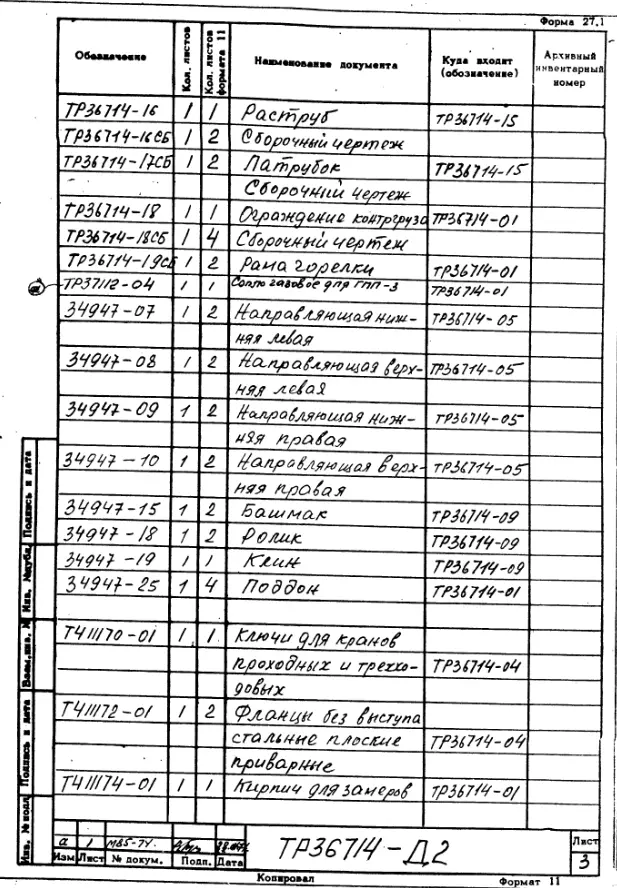 Форма 27.1
Обозначение Кол. листов Кол. листов формата 11 Наименование документа Куда входит (обозначение) Архивный инвентарный номер
ТР36714-16 1 1 Раструб ТР36714-15
ТР36714-16СБ 1 2 Сборочный чертеж
ТР36714-17СБ 1 2 Патрубок ТР36714-15
Сборочный чертеж
ТР36714-18 1 1 Ограждение контргруза ТР36714-01
ТР36714-18СБ 1 4 Сборочный чертеж
ТР36714-19СБ 1 2 Рама горелки ТР36714-01
а ТР37112-04 1 1 Сопло газовое для ГПП-3 ТР36714-01
34947-07 1 2 Направляющая ниж- ТР36714-05
няя левая
34947-08 1 2 Направляющая верх- ТР36714-05
няя левая
34947-09 1 2 Направляющая ниж- ТР36714-05
няя правая
34947-10 1 2 Направляющая верх- ТР36714-05
няя правая
34947-15 1 2 Башмак ТР36714-09
34947-18 1 2 Ролик ТР36714-09
34947-19 1 1 Клин ТР36714-09
34947-25 1 4 Поддон ТР36714-01
Т411170-01 1 1 Ключи для кранов
проходных и треххо- ТР36714-04
довых
Т411172-01 1 2 Фланцы без выступа
стальные плоские ТР36714-04
приварные
Т411174-01 1 1 Кирпич для замеров ТР36714-01
Инв. № подл. Подпись и дата Взам.инв. № Инв. №дубл. Подпись и дата
а 1 М85-74
Изм Лист № докум. Подп. Дата
ТР36714-Д2
Лист
3
Копировал Формат 11